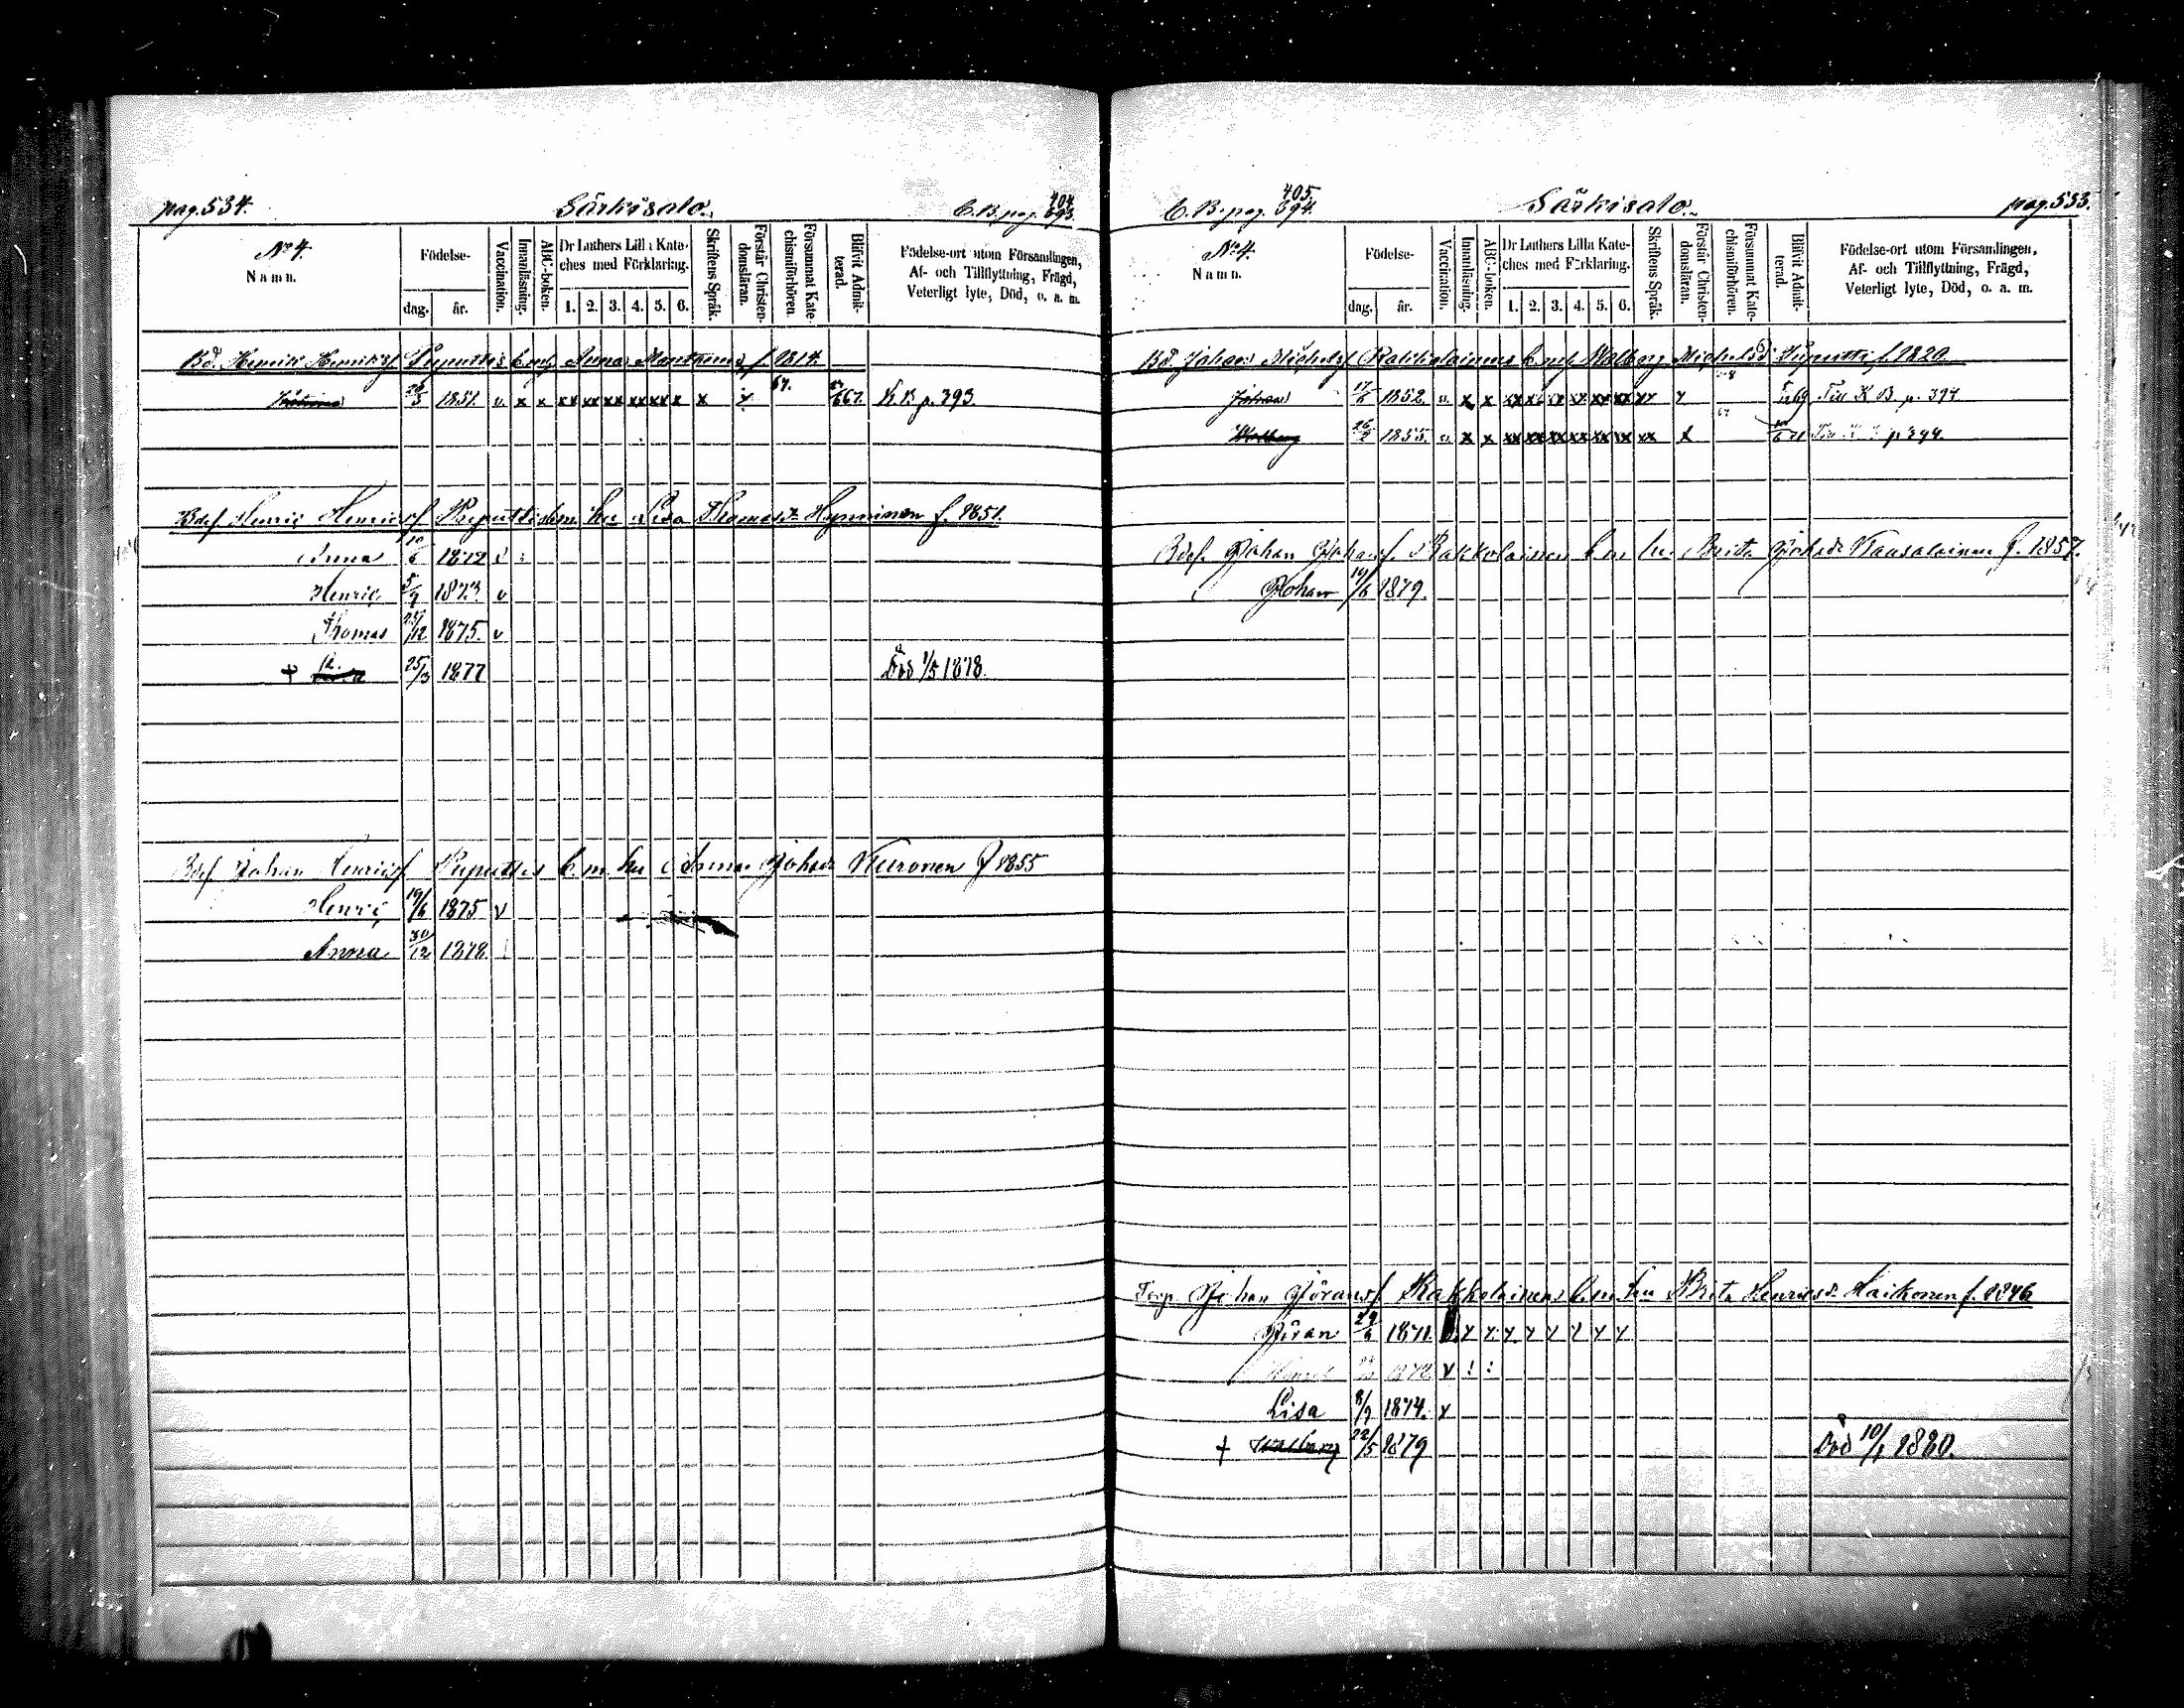 pag. 534.
Särkisalo.
C. B. pag. 404 393.
No 4.
Namn.
Födelse-
dag. år.
Vaccination.
Innanläsning.
ABC-boken.
Dr Luthers Lilla Kate-
ches med Förklaring.
1. 2. 3. 4. 5. 6.
Skriftens Språk.
Förstår Christen-
domsläran.
Försummat Kate-
chismiförhören.
Blifvit Admit-
terad.
Födelse-ort utom Församlingen,
Af- och Tillflyttning, Frägd,
Veterligt lyte, Död, o. a. m.
Bd. Henrik Henriksf. Puputtis b. m. Anna f. 1814.
1851. v x x xx xx xx xx xx x x 67. K B p. 393
Bdsf. Henric Henricsf. Puputtis b. m. hu Lisa Thomasd. Hynninen f. 1851.
Anna 10/6 1872 v :
Henric 5/9 1873 v
Thomas 1875. v
+ 25/3 1877 Död 1/5 1878.
Bdsf Johan Henricsf Puputtis b. m. hu Anna Johsdr Kuronen f 1855
Henric 19/6 1875 v
Anna 30/12 1878
C. B. pag. 405. 394.
Särkisalo.
pag. 535.
No 4.
Namn.
Födelse-
dag. år.
Vaccination.
Innanläsning.
ABC-boken.
Dr Luthers Lilla Kate-
ches med Förklaring.
1. 2. 3. 4. 5. 6.
Skriftens Språk.
Förstår Christen-
domsläran.
Försummat Kate-
chismiförhören.
Blifvit Admit-
terad.
Födelse-ort utom Församlingen,
Af- och Tillflyttning, Frägd,
Veterligt lyte, Död, o. a. m.
Bd. Johan Michelsf. Rakkolainens b. m. Walborg Michelsd. Puputti f. 1820
Johan 17/6 1852. Till K. B. p. 394
Walborg 26/2 1855. p 394.
Bdsf. Johan Johansf. Rakkolainen b. m. hu. Brita Johsdr f. 1857.
Johan 14/6 1879.
Torp. Johan Göransf. Rakkolainens b. m. hu Brita Henricsdr Maikonen f. 1846
Göran 29/6 1871.
v : :
Lisa 8/9 1874. v
+ Walborg 22/5 1879 Död 10/1 1880.